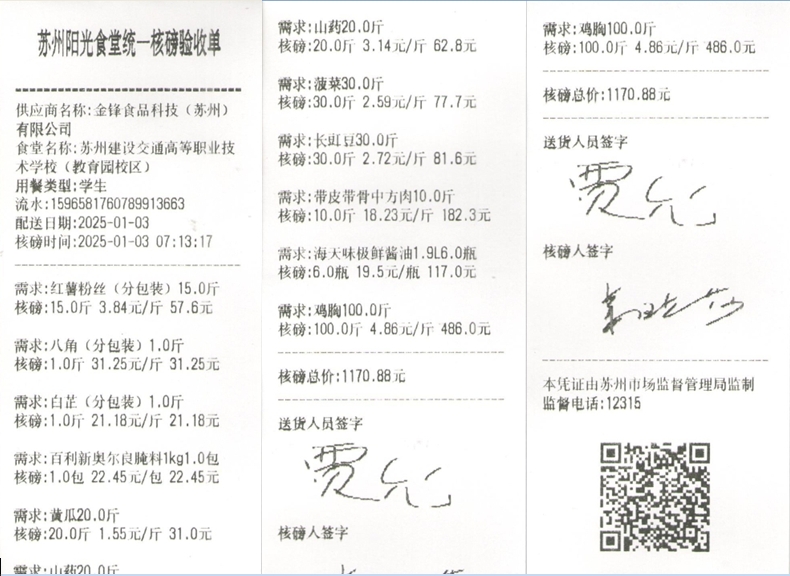 苏州阳光食堂统一核磅验收单
供应商名称:金锋食品科技（苏州）
有限公司
食堂名称:苏州建设交通高等职业技
术学校（教育园校区）
用餐类型:学生
流水:1596581760789913663
配送日期:2025-01-03
核磅时间:2025-01-03 07:13:17
需求:红薯粉丝（分包装）15.0斤
核磅:15.0斤 3.84元/斤 57.6元
需求:八角（分包装）1.0斤
核磅:1.0斤 31.25元/斤 31.25元
需求:白芷（分包装）1.0斤
核磅:1.0斤 21.18元/斤 21.18元
需求:百利新奥尔良腌料1kg1.0包
核磅:1.0包 22.45元/包 22.45元
需求:黄瓜20.0斤
核磅:20.0斤 1.55元/斤 31.0元
需求:山药20.0斤
需求:山药20.0斤
核磅:20.0斤 3.14元/斤 62.8元
需求:菠菜30.0斤
核磅:30.0斤 2.59元/斤 77.7元
需求:长豇豆30.0斤
核磅:30.0斤 2.72元/斤 81.6元
需求:带皮带骨中方肉10.0斤
核磅:10.0斤 18.23元/斤 182.3元
需求:海天味极鲜酱油1.9L6.0瓶
核磅:6.0瓶 19.5元/瓶 117.0元
需求:鸡胸100.0斤
核磅:100.0斤 4.86元/斤 486.0元
核磅总价:1170.88元
送货人员签字
贾允
核磅人签字
需求:鸡胸100.0斤
核磅:100.0斤 4.86元/斤 486.0元
核磅总价:1170.88元
送货人员签字
贾允
核磅人签字
本凭证由苏州市场监督管理局监制
监督电话:12315